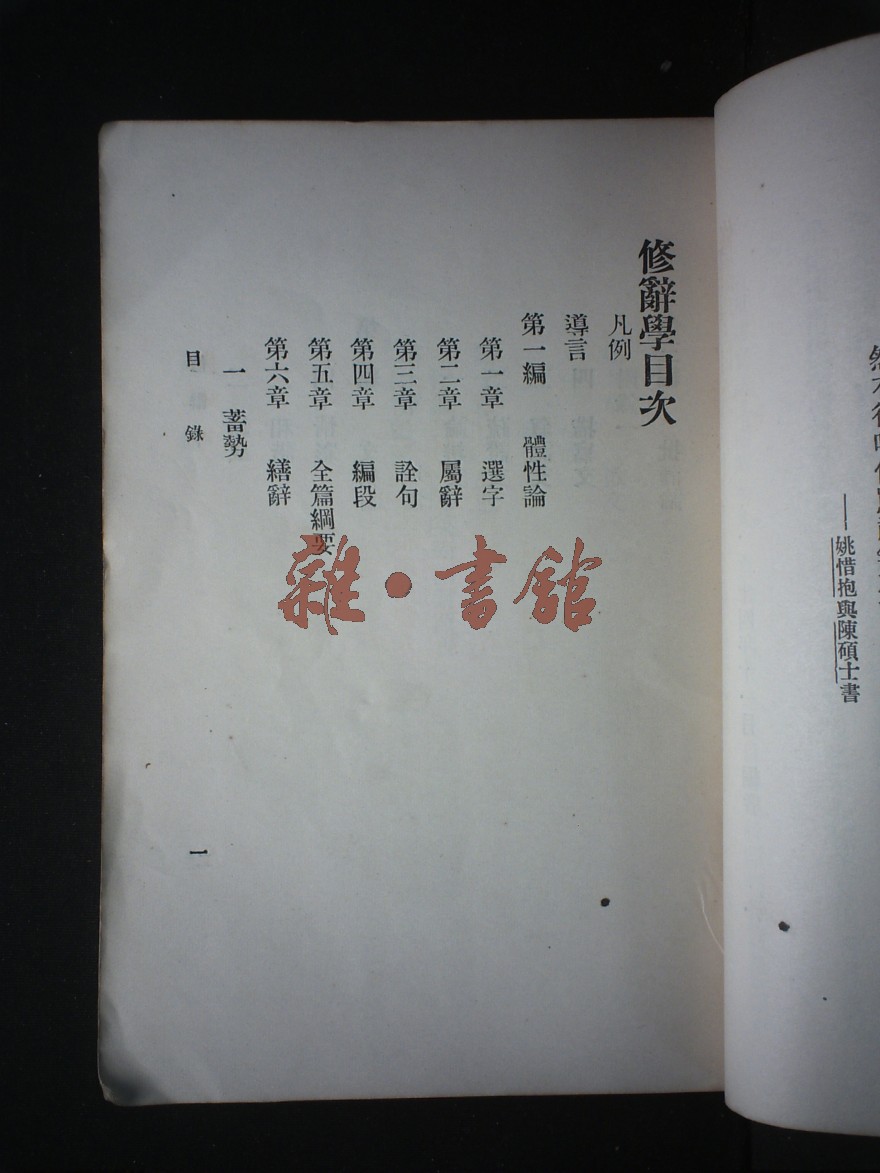 修辭學目次
凡例
導言
第一編 體性論
第一章 選字
第二章 屬辭
第三章 詮句
第四章 編段
第五章 全篇綱要
第六章 繕辭
一 蓄勢
目錄
一
——姚惜抱與陳碩士書
雜·書館